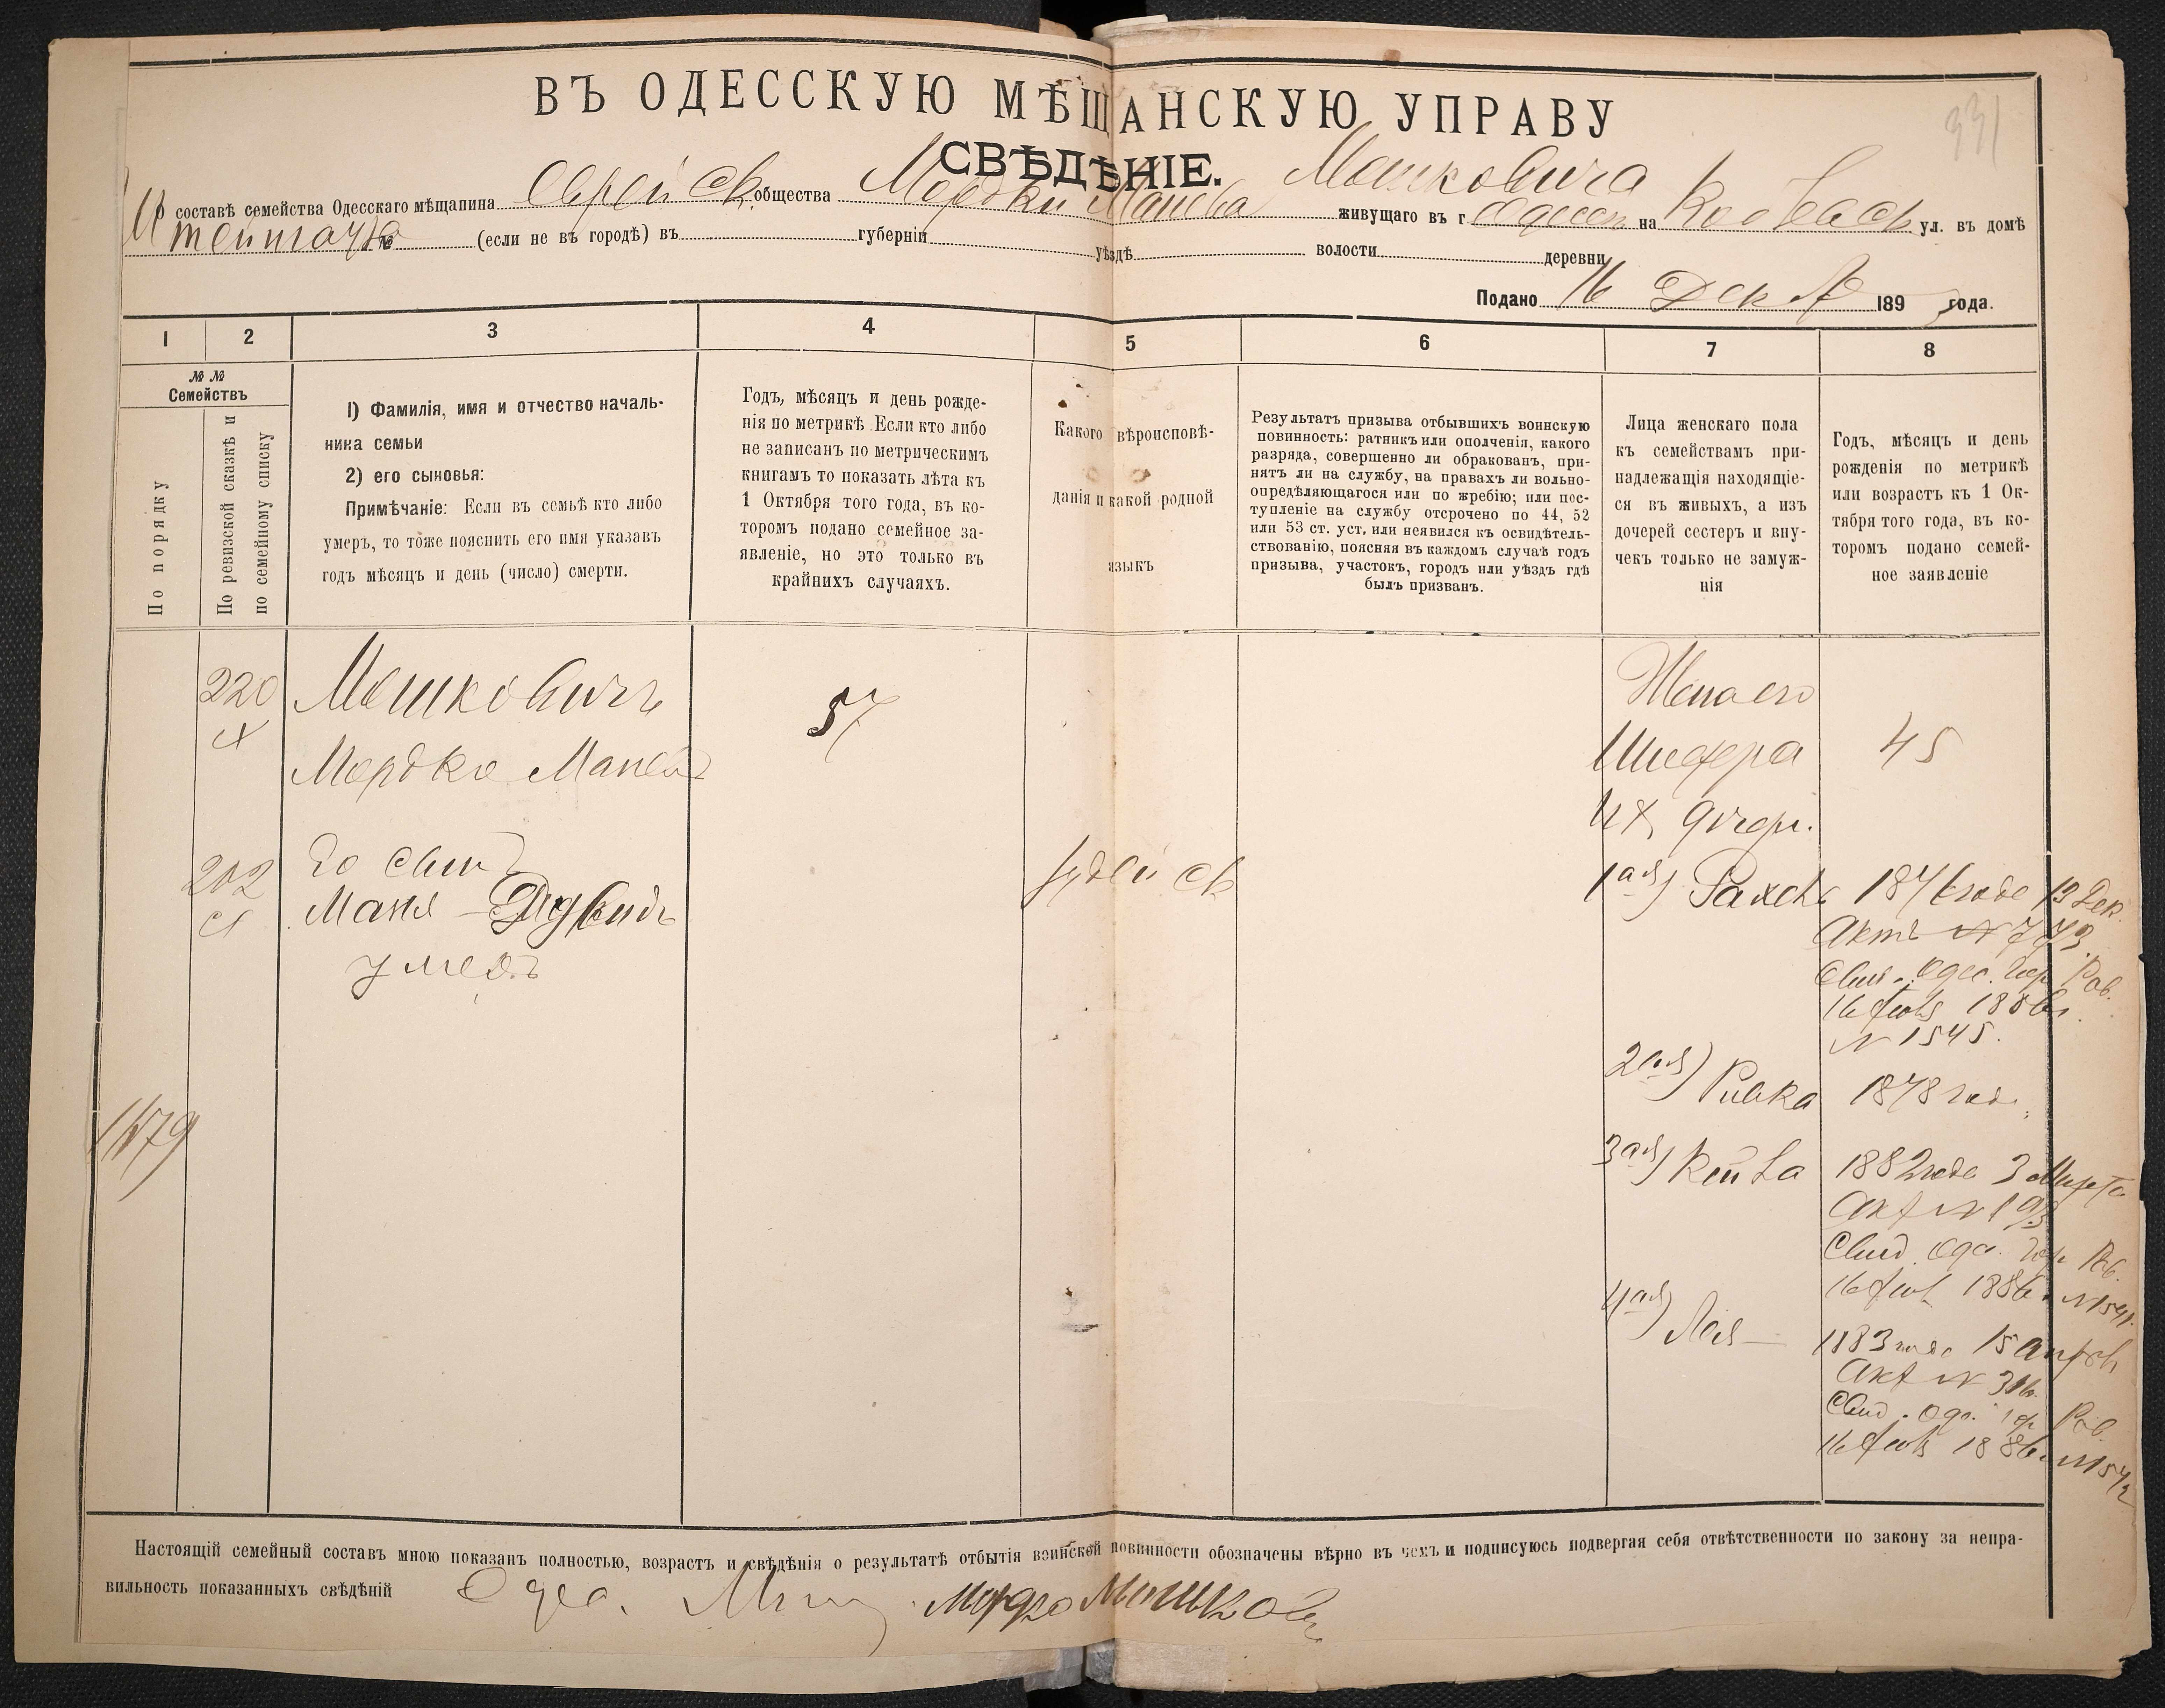 331
ВЪ ОДЕССКУЮ МѢЩАНСКУЮ УПРАВУ
СВѢДѢНІЕ.
О составѣ семейства Одесскаго мѣщанина Еврейск. общества Мордки Манева Мошковича живущаго въ г. Одессѣ на ул. въ домѣ
№ (если не въ городѣ) въ губерніи уѣздѣ волости деревни
Подано 16 Дек 189 года.
1 2 3 4 5 6 7 8
№ №
Семействъ
По порядку
По ревизской сказкѣ и
по семейному списку
1) Фамилія, имя и отчество началь-
ника семьи
2) его сыновья:
Примѣчаніе: Если въ семьѣ кто либо
умеръ, то тоже пояснить его имя указавъ
годъ мѣсяцъ и день (число) смерти.
Годъ, мѣсяцъ и день рожде-
нія по метрикѣ. Если кто либо
не записанъ по метрическимъ
книгамъ то показать лѣта къ
1 Октября того года, въ ко-
торомъ подано семейное за-
явленіе, но это только въ
крайнихъ случаяхъ.
Какого вѣроисповѣ-
данія и какой родной
языкъ
Результатъ призыва отбывшихъ воинскую
повинность: ратникъ или ополченія, какого
разряда, совершенно ли обракованъ, при-
нятъ ли на службу, на правахъ ли вольно-
опредѣляющагося или по жребію; или пос-
тупленіе на службу отсрочено по 44, 52
или 53 ст. уст, или неявился къ освидѣтель-
ствованію, поясняя въ каждомъ случаѣ годъ
призыва, участокъ, городъ или уѣздъ гдѣ
былъ призванъ.
Лица женскаго пола
къ семействамъ при-
надлежащія находящіе-
ся въ живыхъ, а изъ
дочерей сестеръ и вну-
чекъ только не замуж-
нія
Годъ, мѣсяцъ и день
рожденія по метрикѣ
или возрастъ къ 1 Ок-
тября того года, въ ко-
торомъ подано семей-
ное заявленіе
220 Мошковичъ 57 Жена его
Мордко Манев Шифра 45
Их дчери.
202 Его сынъ Іудейск 1ая) Рахель 1876 года 13 Дек.
Маня-Дувидъ Актъ № 773
умеръ Свид. Одес. Гор. Рав.
16 1886 г.
№ 1545.
2ая) Ривка 1878 год.
1879
3ая) Кейла 1882 года 3 Марта
Акт № 193
Свид. Одес. Гор. Рав.
16 1886 г. № 1541.
4ая) Лея 1883 года 15 апрѣл
Акт № 316
Свид. Одес. Гор. Рав.
16 1886 г. № 1542
Настоящій семейный составъ мною показанъ полностью, возрастъ и свѣдѣнія о результатѣ отбытія воинской повинности обозначены вѣрно въ чемъ и подписуюсь подвергая себя отвѣтственности по закону за непра-
вильность показанныхъ свѣдѣній Одес. Мѣщ. Мордко Мошкович